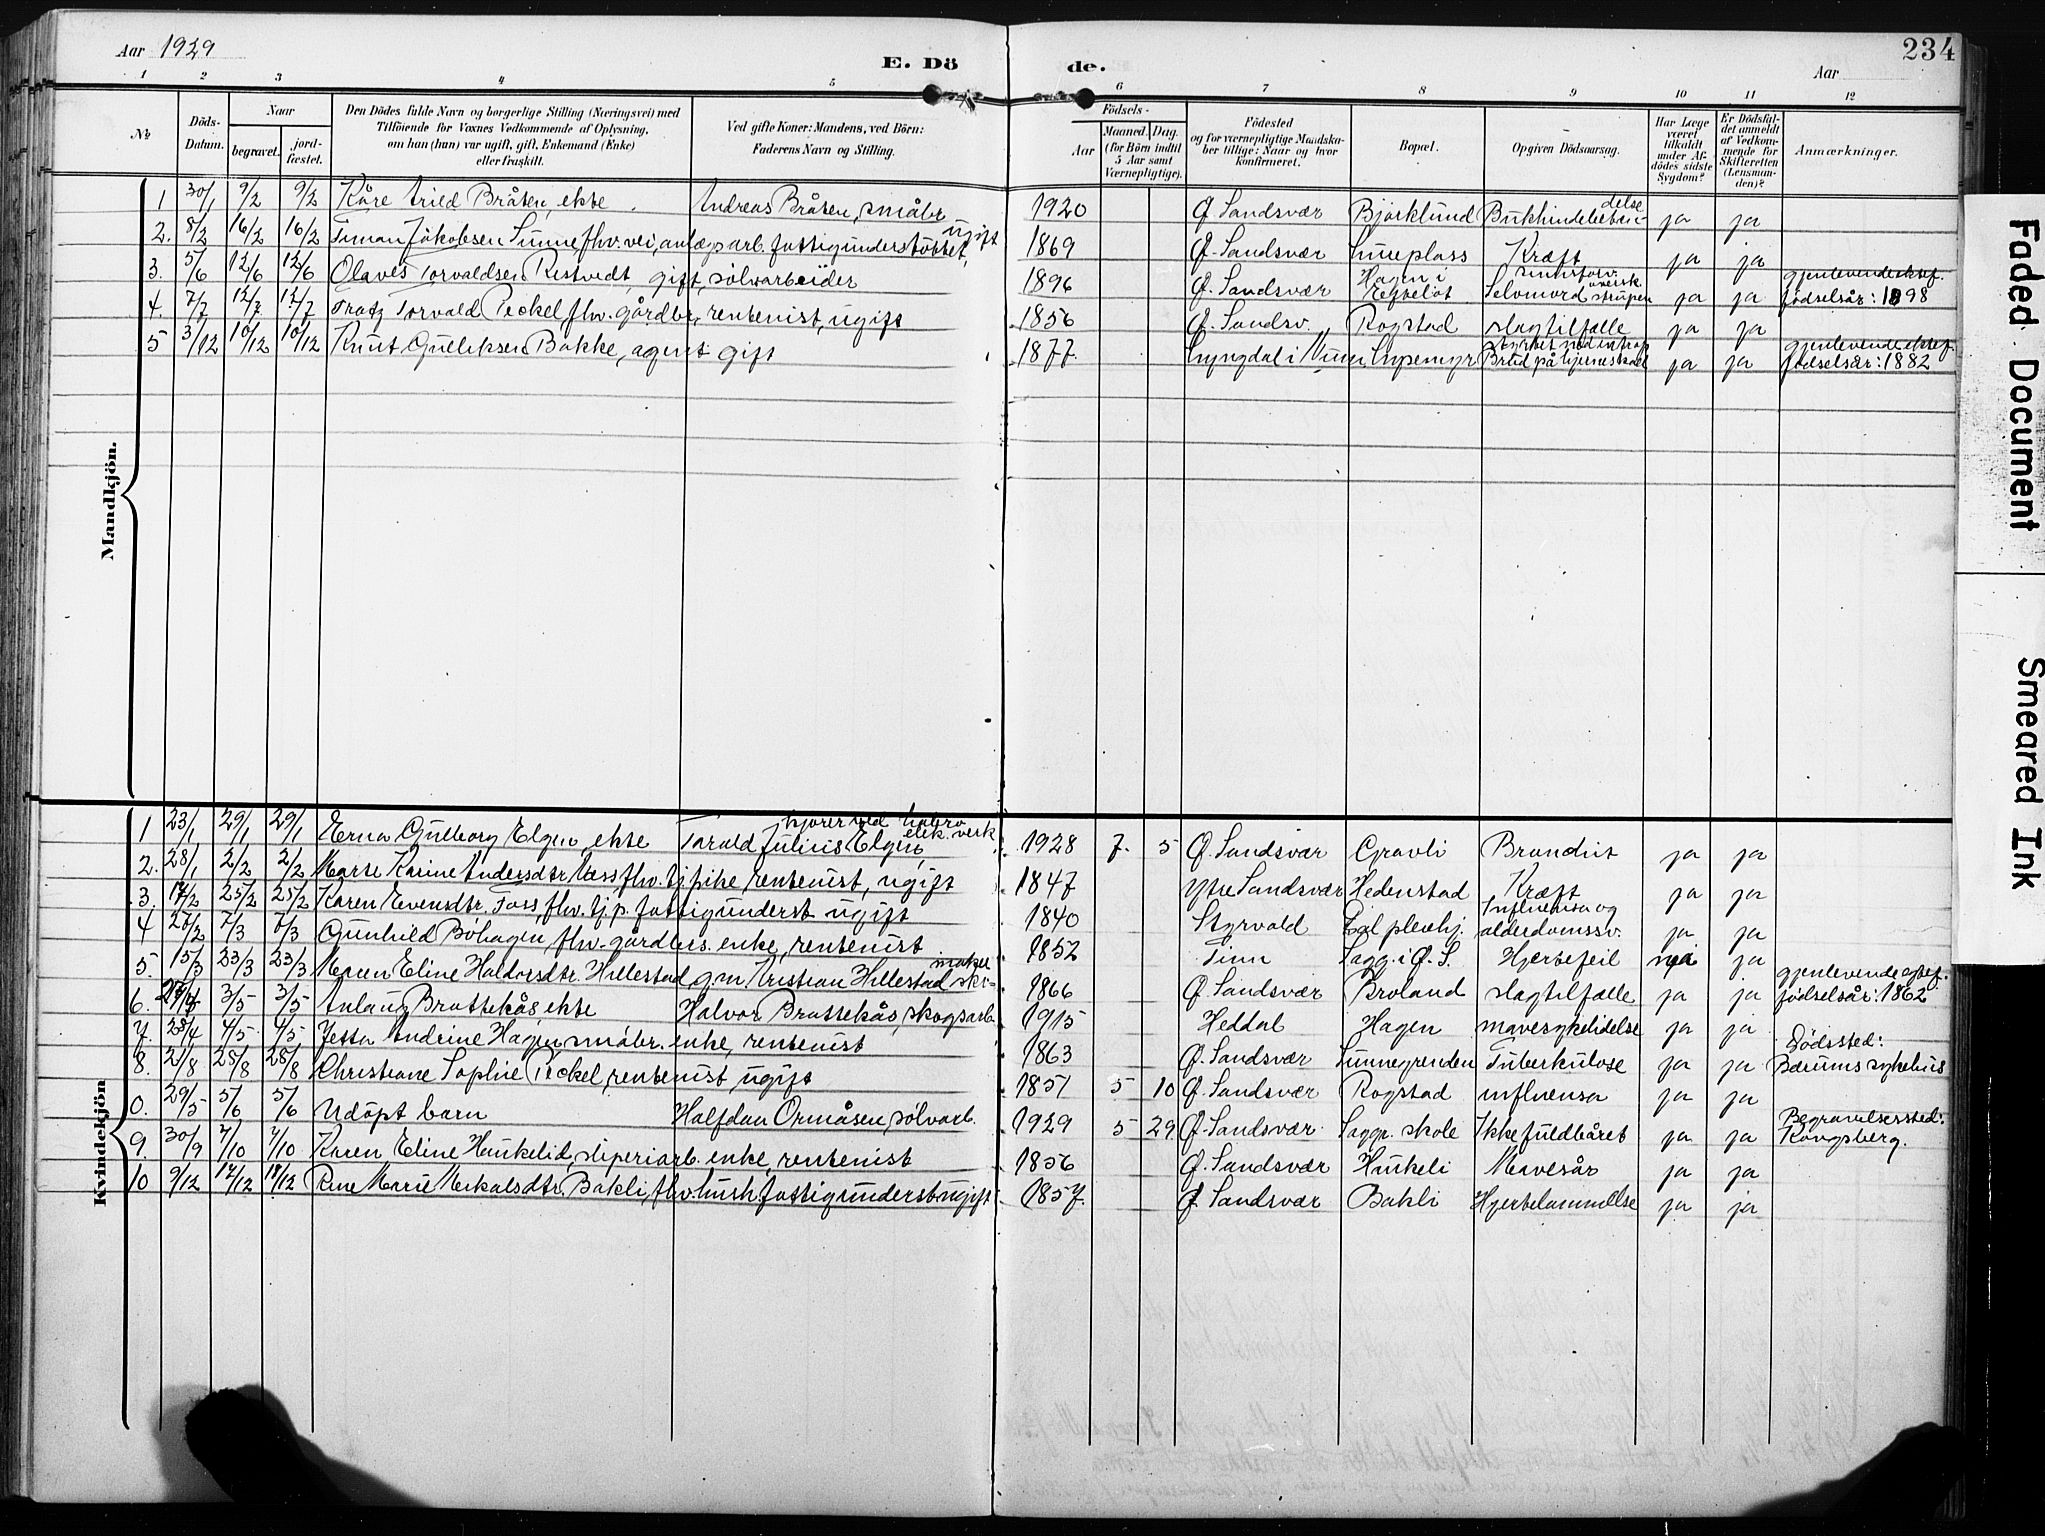 Aar 1929
E. Dö
de.
Aar
234
1 2 3 4 5 6 7 8 9 10 11 12
No
Döds-Datum.
Naar
begravet.
jord-fæstet.
Den Dödes fulde Navn og borgerlige Stilling (Næringsvei) med
Tilföiende for Voxnes Vedkommende af Oplysning,
om han (hun) var ugift, gift, Enkemand (Enke)
eller fraskilt.
Ved gifte Koner: Mandens, ved Börn:
Faderens Navn og Stilling.
Födsels-
Aar
Maaned. Dag.
(for Börn indtil
5 Aar samt
Værnepligtige).
Födested
og for værnepligtige Mandska-
ber tillige: Naar og hvor
konfirmeret.
Bopæl.
Opgiven Dödsaarsag.
Har Læge
været
tilkaldt
under Af-
dödes sidste
Sygdom?
Er Dödsfal-
det anmeldt
af Vedkom-
mende for
Skifteretten
(Lensman-
den)?
Anmærkninger.
Mandkjön.
1 30/1 9/2 9/2 Kåre Arild Bråten, ekte. Andreas Bråten, småbr. 1920 Ø. Sandsvær Bjørklund ja ja
2. 8/2 16/2 16/2 Jakobsen fhv. vei, anlægsarb. fattigunderstöttet, ugift 1869 Ø. Sandsvær Kræft ja ja
3. 5/6 12/6 12/6 Olaves Torvaldsen Restvedt, gift, sølvarbeider 1896 Ø. Sandsvær Hagen i Selvmord strupen ja ja gjenlevende ektef. fødselsår: 1898
4 7/7 12/7 12/7 Torvald Teckel, fhv. gårdbr., rentenist, ugift 1856 Ø. Sandsv. Rogstad slagtilfælle ja ja
5 3/12 10/12 10/12 Knut Gulliksen Bakke, agent gift 1877 Lyngdal i Numd. Brud på hjerneskall ja ja gjenlevende ektef. fødselsår: 1882
Kvindekjön
1 23/1 29/1 29/1 Erna Gulborg Elgen, ekte Tarald Julius Elgen, elek. verk 1928 7. 5 Ø. Sandsvær Gravli Brondit ja ja
2. 28/1 2/2 2/2 Marte Karine Andersdtr. fhv. tj.pike, rentenist, ugift 1847 Ytre Sandsvær Hedenstad Kræft ja ja
3. 17/2 25/2 25/2 Karen Evensdtr. Foss, fhv. tj.p. fattigunderst ugift 1840 Styrvold pleiehj. Influensa og alderdomssv. ja ja
4 26/2 7/3 7/3 Gunhild Böhagen, fhv. gårdbrs. enke, rentenist 1852 Tinn Sagg. i Ø.S. Hjertefeil ja
5. 15/3 23/3 23/3 Maren Eline Haldorsdtr. Hillestad g.m. Kristian Hillestad sko-maker 1866 Ø. Sandsvær Broland slagtilfælle ja ja gjenlevende ektef. fødselsår: 1862
6. 3/5 3/5 Aslaug Brattekås, ekte Halvor Brattekås, skogsarb. 1915 Heddal Hagen mavesykelidelse ja ja
7. 28/4 4/5 4/5 Andrine Hagen, småbr. enke, rentenist 1863 Ø. Sandsvær Sunnegrenden Tuberkulose ja ja Dødssted: Bærums sykehus
8. 21/8 25/8 25/8 Christiane Sophie Teckel, rentenist ugift 1851 5 10 Ø. Sandsvær Rogstad influensa ja ja
0. 29/5 5/6 5/6 Udöpt barn Halfdan Ormåsen, sølvarb. 1929 5 29 Ø. Sandsvær. Saggr. skole Ikke fuldbåret ja ja Begravelsessted: Kongsberg.
9. 30/9 7/10 7/10 Karen Eline Haukelid, sliperiarb. enke, rentenist 1856 Ø. Sandsvær Haukeli Mavesår ja ja
10 9/12 17/12 17/12 Marie Bakli, fhv. hush. fattigunderst ugift 1857. Ø. Sandsvær Bakli Hjertelammelse ja ja
Faded Document
Smeared Ink